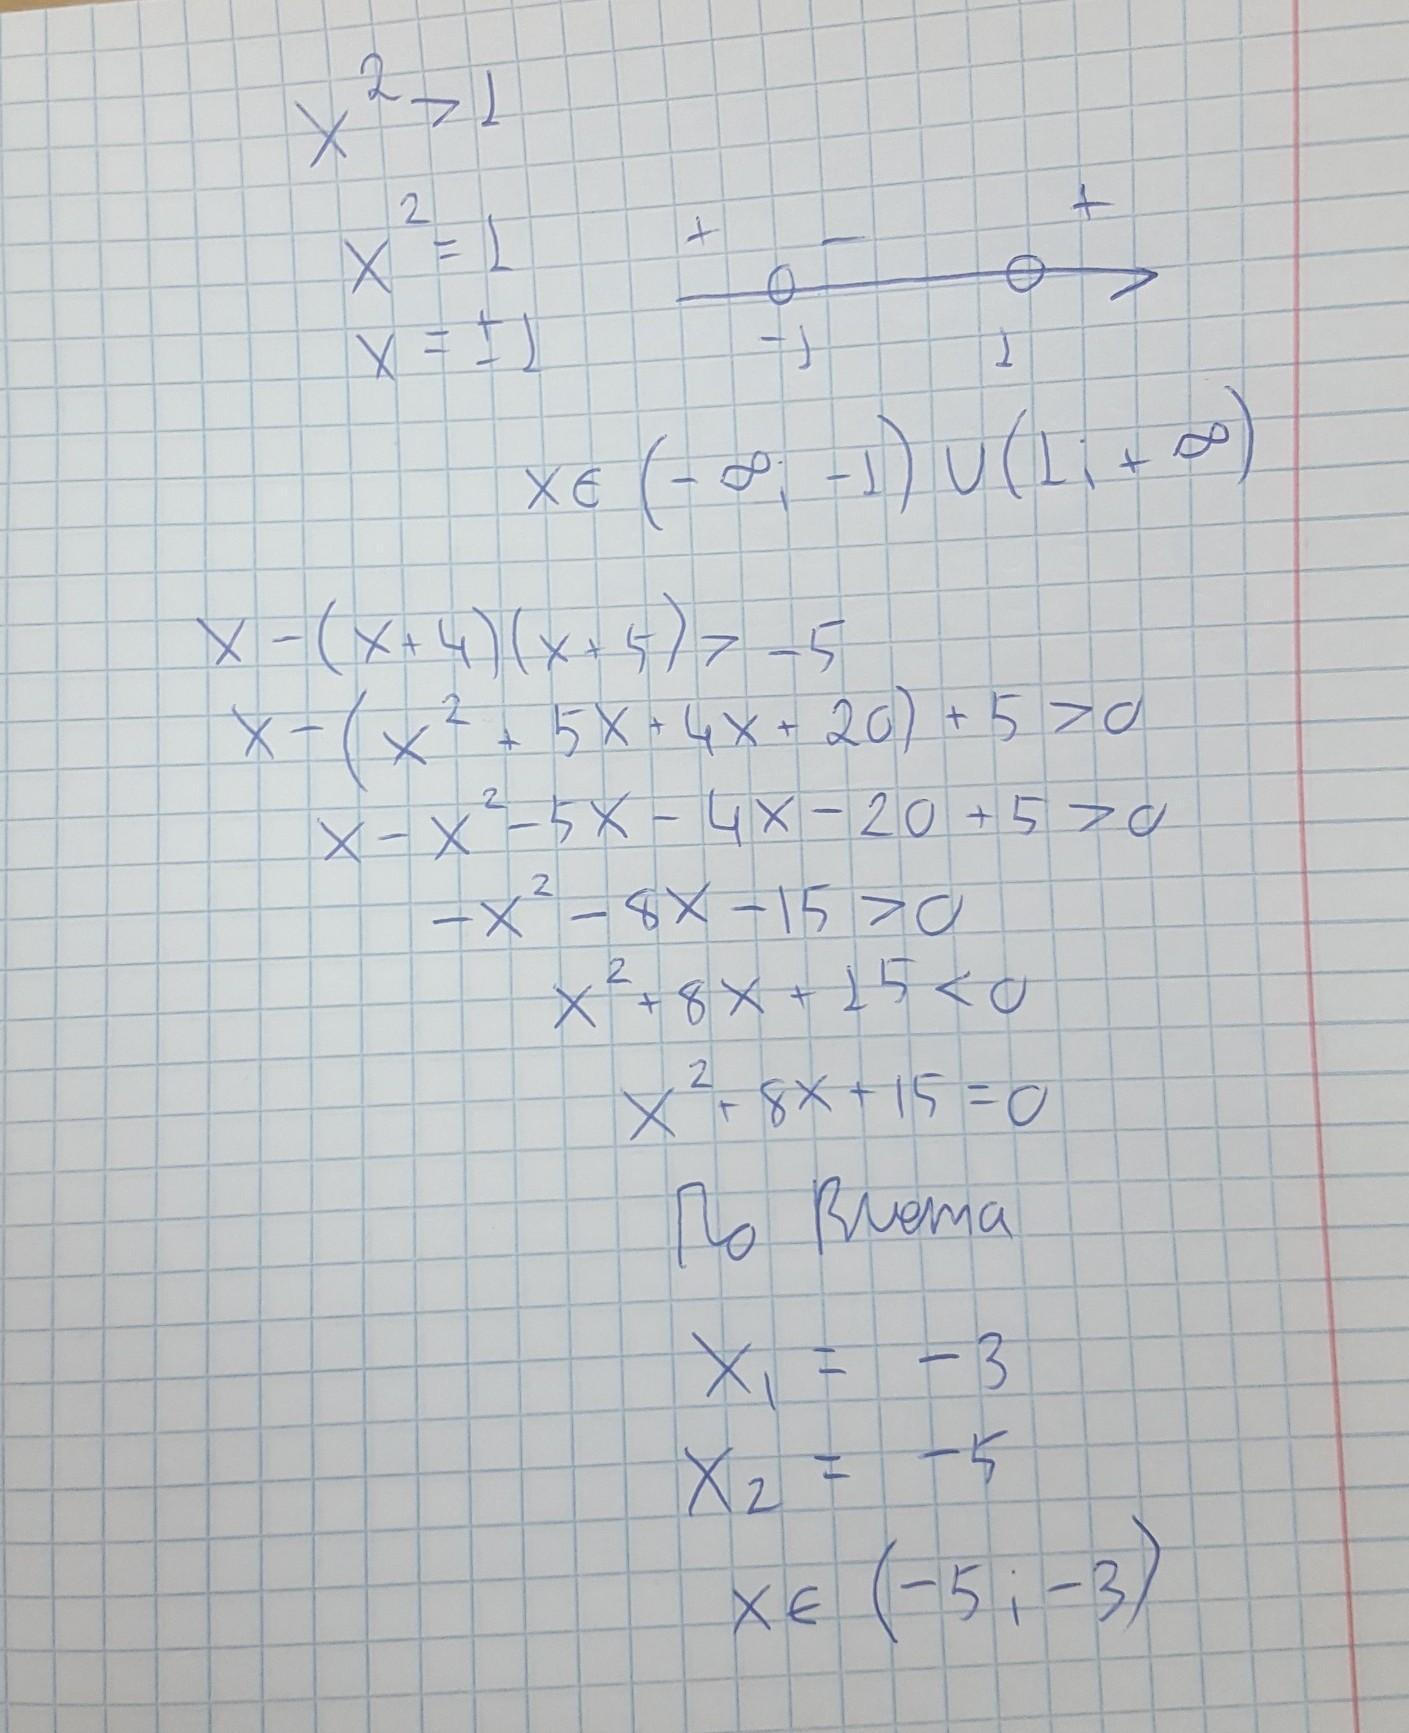 x² > 1
x² = 1
+ − +
x = ±1
-1 1
x ∈ (-∞; -1) ∪ (1; +∞)
x - (x+4)(x+5) > -5
x - (x² + 5x + 4x + 20) + 5 > 0
x - x² - 5x - 4x - 20 + 5 > 0
-x² - 8x - 15 > 0
x² + 8x + 15 < 0
x² + 8x + 15 = 0
По Виета
x₁ = -3
x₂ = -5
x ∈ (-5; -3)